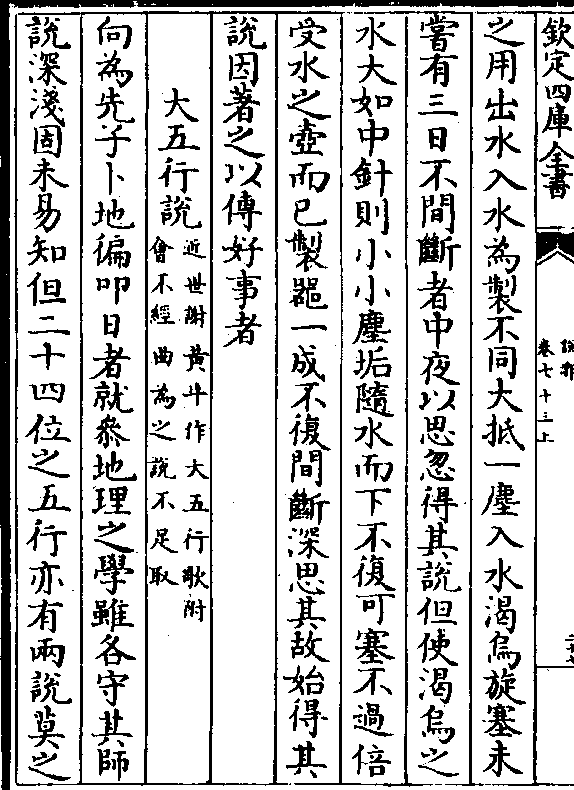 欽定四庫全書
說郛
卷七十三上
之用出水入水為製不同大抵一塵入水渴烏旋塞未
嘗有三日不間斷者中夜以思忽得其說但使渴烏之
水大如中針則小小塵垢隨水而下不復可塞不過倍
受水之壺而已製器一成不復間斷深思其故始得其
說因著之以傳好事者
大五行說
近世謝黃牛作大五行歌附
會不經曲為之說不足取
向為先子卜地徧叩日者就叅地理之學雖各守其師
說深淺固未易知但二十四位之五行亦有兩說莫之